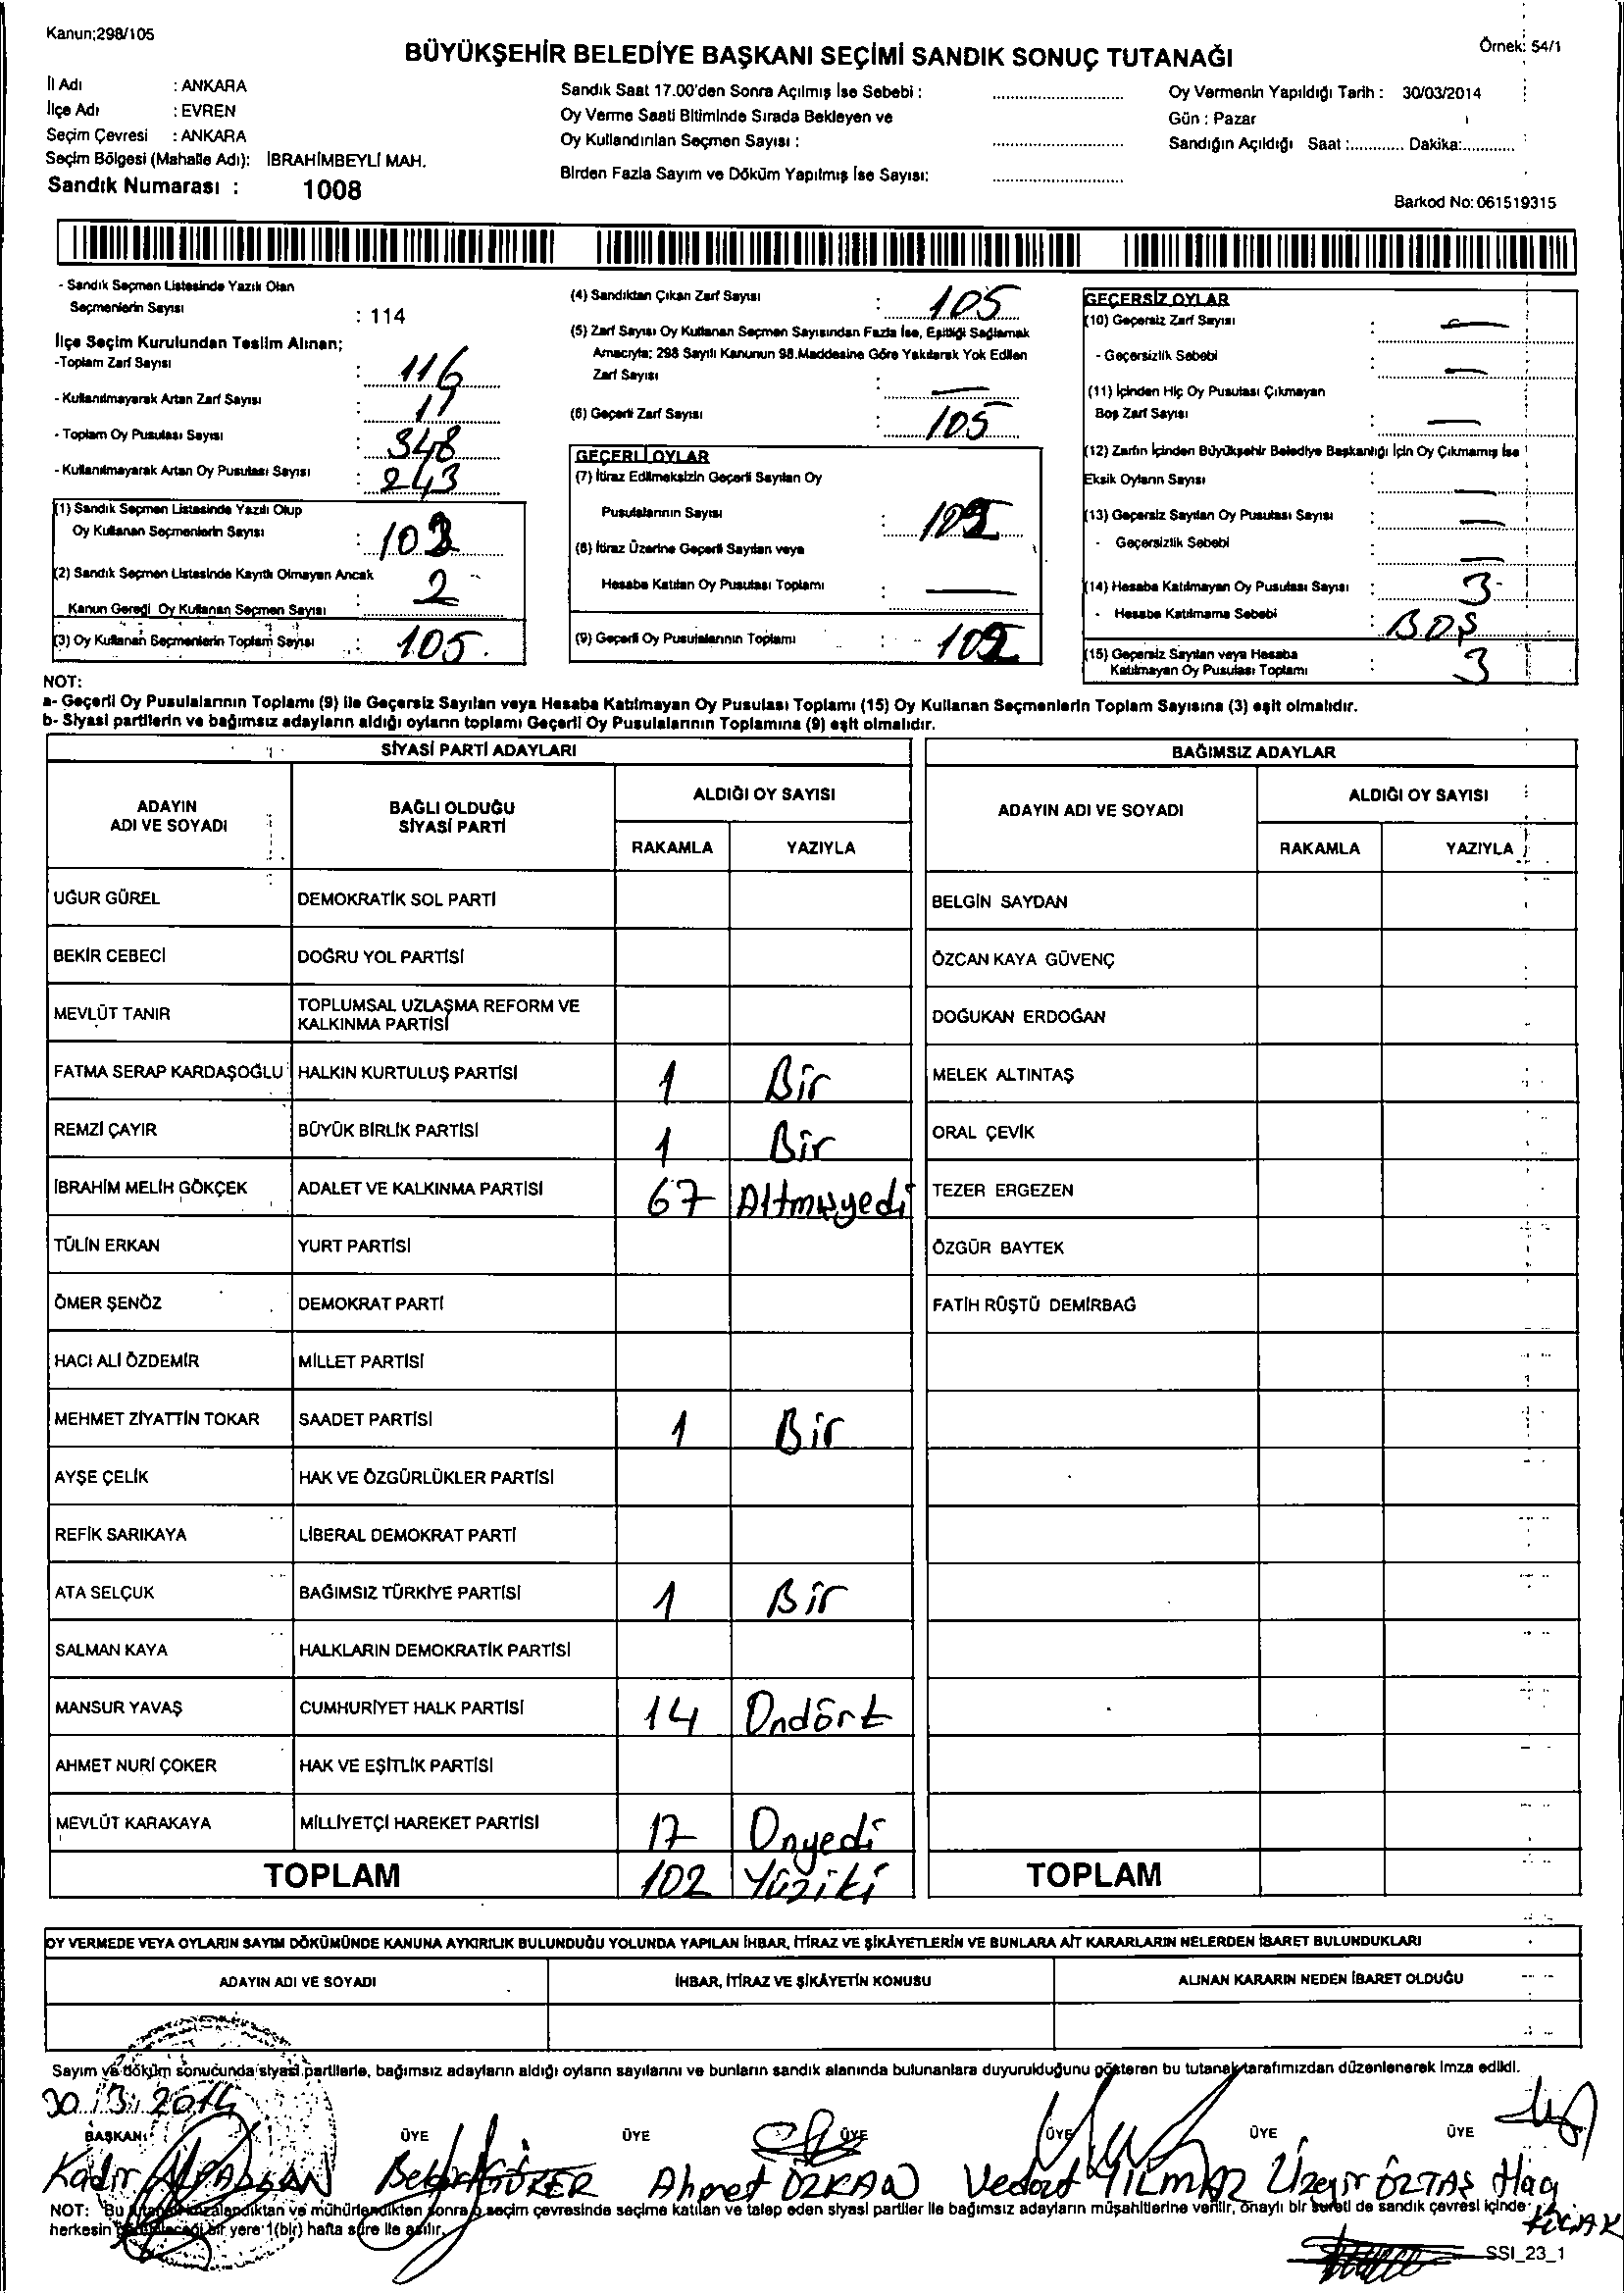 Kanun;298/105
Örnek: 54/1
BÜYÜKŞEHİR BELEDİYE BAŞKANI SEÇİMİ SANDIK SONUÇ TUTANAĞI
İl Adı : ANKARA
İlçe Adı : EVREN
Seçim Çevresi : ANKARA
Seçim Bölgesi (Mahalle Adı): İBRAHİMBEYLİ MAH.
Sandık Numarası : 1008
Sandık Saat 17.00'den Sonra Açılmış İse Sebebi :
Oy Verme Saati Bitiminde Sırada Bekleyen ve
Oy Kullandırılan Seçmen Sayısı :
Birden Fazla Sayım ve Döküm Yapılmış İse Sayısı:
Oy Vermenin Yapıldığı Tarih : 30/03/2014
Gün : Pazar
Sandığın Açıldığı Saat :............ Dakika:............
Barkod No: 061519315
- Sandık Seçmen Listesinde Yazılı Olan
Seçmenlerin Sayısı : 114
İlçe Seçim Kurulundan Teslim Alınan;
-Toplam Zarf Sayısı : 116
- Kullanılmayarak Artan Zarf Sayısı : 11
- Toplam Oy Pusulası Sayısı : 348
- Kullanılmayarak Artan Oy Pusulası Sayısı : 243
(1) Sandık Seçmen Listesinde Yazılı Olup
Oy Kullanan Seçmenlerin Sayısı : 103
(2) Sandık Seçmen Listesinde Kayıtlı Olmayan Ancak
Kanun Gereği Oy Kullanan Seçmen Sayısı : 2
(3) Oy Kullanan Seçmenlerin Toplam Sayısı : 105
(4) Sandıktan Çıkan Zarf Sayısı : 105
(5) Zarf Sayısı Oy Kullanan Seçmen Sayısından Fazla İse, Eşitliği Sağlamak
Amacıyla; 298 Sayılı Kanunun 98.Maddesine Göre Yakılarak Yok Edilen
Zarf Sayısı : —
(6) Geçerli Zarf Sayısı : 105
GEÇERLİ OYLAR
(7) İtiraz Edilmeksizin Geçerli Sayılan Oy
Pusulalarının Sayısı : 102
(8) İtiraz Üzerine Geçerli Sayılan veya
Hesaba Katılan Oy Pusulası Toplamı : —
(9) Geçerli Oy Pusulalarının Toplamı : 102
GEÇERSİZ OYLAR
(10) Geçersiz Zarf Sayısı : —
- Geçersizlik Sebebi : —
(11) İçinden Hiç Oy Pusulası Çıkmayan
Boş Zarf Sayısı : —
(12) Zarfın İçinden Büyükşehir Belediye Başkanlığı İçin Oy Çıkmamış İse
Eksik Oyların Sayısı : —
(13) Geçersiz Sayılan Oy Pusulası Sayısı : —
- Geçersizlik Sebebi : —
(14) Hesaba Katılmayan Oy Pusulası Sayısı : 3
- Hesaba Katılmama Sebebi : BOŞ
(15) Geçersiz Sayılan veya Hesaba
Katılmayan Oy Pusulası Toplamı : 3
NOT:
a- Geçerli Oy Pusulalarının Toplamı (9) ile Geçersiz Sayılan veya Hesaba Katılmayan Oy Pusulası Toplamı (15) Oy Kullanan Seçmenlerin Toplam Sayısına (3) eşit olmalıdır.
b- Siyasi partilerin ve bağımsız adayların aldığı oyların toplamı Geçerli Oy Pusulalarının Toplamına (9) eşit olmalıdır.
SİYASİ PARTİ ADAYLARI
ADAYIN ADI VE SOYADI
BAĞLI OLDUĞU SİYASİ PARTİ
ALDIĞI OY SAYISI
RAKAMLA YAZIYLA
UĞUR GÜREL DEMOKRATİK SOL PARTİ
BEKİR CEBECİ DOĞRU YOL PARTİSİ
MEVLÜT TANIR TOPLUMSAL UZLAŞMA REFORM VE KALKINMA PARTİSİ
FATMA SERAP KARDAŞOĞLU HALKIN KURTULUŞ PARTİSİ 1 Bir
REMZİ ÇAYIR BÜYÜK BİRLİK PARTİSİ 1 Bir
İBRAHİM MELİH GÖKÇEK ADALET VE KALKINMA PARTİSİ 67 Altmışyedi
TÜLİN ERKAN YURT PARTİSİ
ÖMER ŞENÖZ DEMOKRAT PARTİ
HACI ALİ ÖZDEMİR MİLLET PARTİSİ
MEHMET ZİYATTİN TOKAR SAADET PARTİSİ 1 Bir
AYŞE ÇELİK HAK VE ÖZGÜRLÜKLER PARTİSİ
REFİK SARIKAYA LİBERAL DEMOKRAT PARTİ
ATA SELÇUK BAĞIMSIZ TÜRKİYE PARTİSİ 1 Bir
SALMAN KAYA HALKLARIN DEMOKRATİK PARTİSİ
MANSUR YAVAŞ CUMHURİYET HALK PARTİSİ 14 Ondört
AHMET NURİ ÇOKER HAK VE EŞİTLİK PARTİSİ
MEVLÜT KARAKAYA MİLLİYETÇİ HAREKET PARTİSİ 17 Onyedi
TOPLAM 102 Yüziki
BAĞIMSIZ ADAYLAR
ADAYIN ADI VE SOYADI
ALDIĞI OY SAYISI
RAKAMLA YAZIYLA
BELGİN SAYDAN
ÖZCAN KAYA GÜVENÇ
DOĞUKAN ERDOĞAN
MELEK ALTINTAŞ
ORAL ÇEVİK
TEZER ERGEZEN
ÖZGÜR BAYTEK
FATİH RÜŞTÜ DEMİRBAĞ
TOPLAM
OY VERMEDE VEYA OYLARIN SAYIM DÖKÜMÜNDE KANUNA AYKIRILIK BULUNDUĞU YOLUNDA YAPILAN İHBAR, İTİRAZ VE ŞİKÂYETLERİN VE BUNLARA AİT KARARLARIN NELERDEN İBARET BULUNDUKLARI
ADAYIN ADI VE SOYADI
İHBAR, İTİRAZ VE ŞİKÂYETİN KONUSU
ALINAN KARARIN NEDEN İBARET OLDUĞU
Sayım ve döküm sonucunda siyasi partilerle, bağımsız adayların aldığı oyların sayılarını ve bunların sandık alanında bulunanlara duyurulduğunu gösteren bu tutanak tarafımızdan düzenlenerek imza edildi.
30.13.2014
BAŞKAN ÜYE ÜYE ÜYE ÜYE ÜYE ÜYE
Kadir ALPASLAN Ahmet ÖZKAN Vedat YILMAZ Üzeyir ÖZTAŞ Hacı
NOT: Bu mühürlendikten sonra o seçim çevresinde seçime katılan ve talep eden siyasi partiler ile bağımsız adayların müşahitlerine verilir, onaylı bir sureti de sandık çevresi içinde
herkesin bir yere 1(bir) hafta süre ile asılır.
SSI_23_1